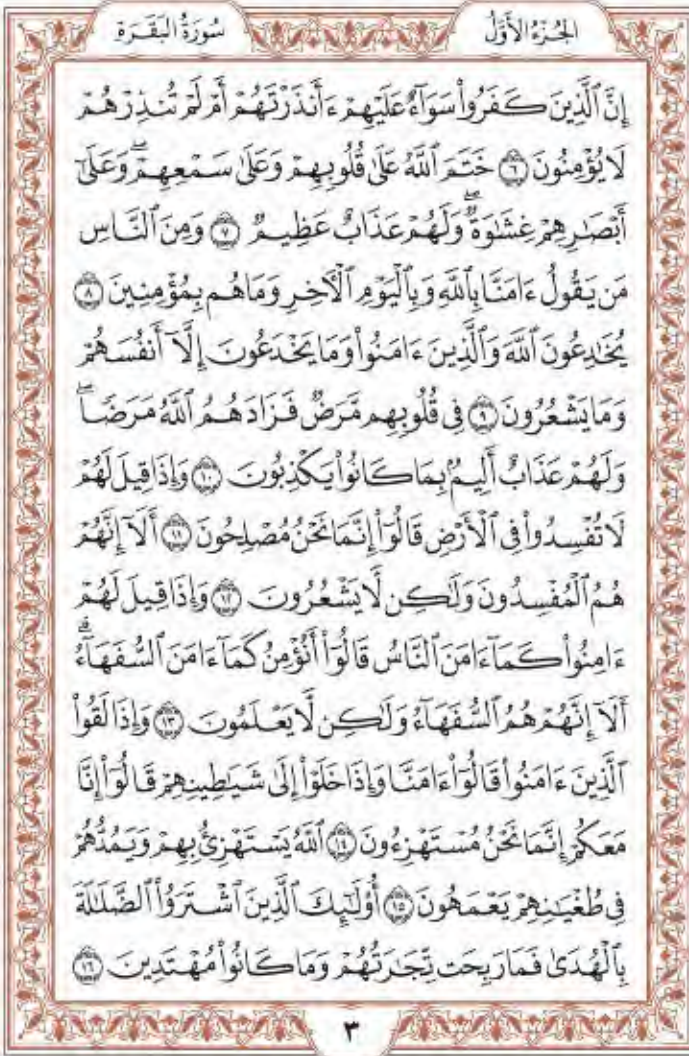 الجُزْءُ الأَوَّلُ
سُورَةُ البَقَرَةِ
إِنَّ ٱلَّذِينَ كَفَرُوا۟ سَوَآءٌ عَلَيْهِمْ ءَأَنذَرْتَهُمْ أَمْ لَمْ تُنذِرْهُمْ
لَا يُؤْمِنُونَ ۝٦ خَتَمَ ٱللَّهُ عَلَىٰ قُلُوبِهِمْ وَعَلَىٰ سَمْعِهِمْ ۖ وَعَلَىٰٓ
أَبْصَٰرِهِمْ غِشَٰوَةٌ ۖ وَلَهُمْ عَذَابٌ عَظِيمٌ ۝٧ وَمِنَ ٱلنَّاسِ
مَن يَقُولُ ءَامَنَّا بِٱللَّهِ وَبِٱلْيَوْمِ ٱلْءَاخِرِ وَمَا هُم بِمُؤْمِنِينَ ۝٨
يُخَٰدِعُونَ ٱللَّهَ وَٱلَّذِينَ ءَامَنُوا۟ وَمَا يَخْدَعُونَ إِلَّآ أَنفُسَهُمْ
وَمَا يَشْعُرُونَ ۝٩ فِى قُلُوبِهِم مَّرَضٌ فَزَادَهُمُ ٱللَّهُ مَرَضًا ۖ
وَلَهُمْ عَذَابٌ أَلِيمٌۢ بِمَا كَانُوا۟ يَكْذِبُونَ ۝١٠ وَإِذَا قِيلَ لَهُمْ
لَا تُفْسِدُوا۟ فِى ٱلْأَرْضِ قَالُوٓا۟ إِنَّمَا نَحْنُ مُصْلِحُونَ ۝١١ أَلَآ إِنَّهُمْ
هُمُ ٱلْمُفْسِدُونَ وَلَٰكِن لَّا يَشْعُرُونَ ۝١٢ وَإِذَا قِيلَ لَهُمْ
ءَامِنُوا۟ كَمَآ ءَامَنَ ٱلنَّاسُ قَالُوٓا۟ أَنُؤْمِنُ كَمَآ ءَامَنَ ٱلسُّفَهَآءُ ۗ
أَلَآ إِنَّهُمْ هُمُ ٱلسُّفَهَآءُ وَلَٰكِن لَّا يَعْلَمُونَ ۝١٣ وَإِذَا لَقُوا۟
ٱلَّذِينَ ءَامَنُوا۟ قَالُوٓا۟ ءَامَنَّا وَإِذَا خَلَوْا۟ إِلَىٰ شَيَٰطِينِهِمْ قَالُوٓا۟ إِنَّا
مَعَكُمْ إِنَّمَا نَحْنُ مُسْتَهْزِءُونَ ۝١٤ ٱللَّهُ يَسْتَهْزِئُ بِهِمْ وَيَمُدُّهُمْ
فِى طُغْيَٰنِهِمْ يَعْمَهُونَ ۝١٥ أُو۟لَٰٓئِكَ ٱلَّذِينَ ٱشْتَرَوُا۟ ٱلضَّلَٰلَةَ
بِٱلْهُدَىٰ فَمَا رَبِحَت تِّجَٰرَتُهُمْ وَمَا كَانُوا۟ مُهْتَدِينَ ۝١٦
٣